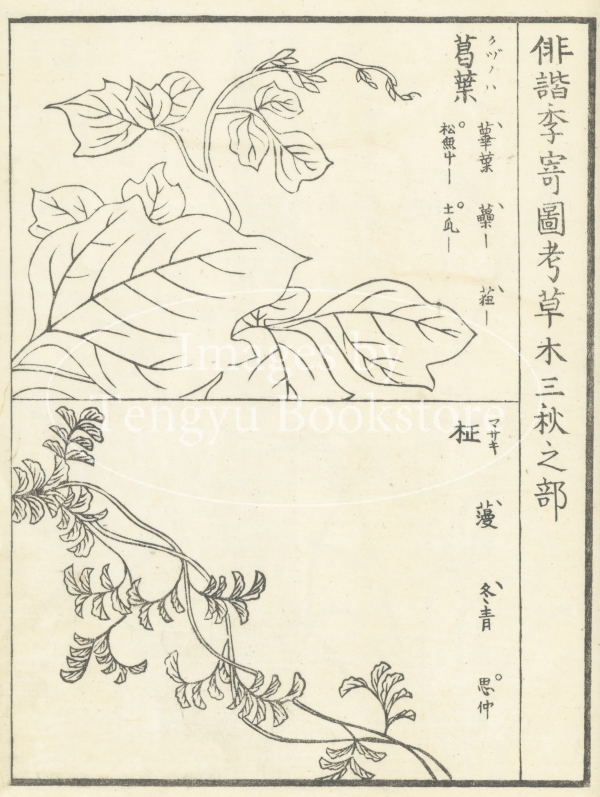 俳諧季寄圖考草木三秋之部
クヅノハ
葛葉
蓽葉
松魚中ー
土瓜ー
マサキ
柾
蔓
冬青
思仲
Images by
Tengyu Bookstore